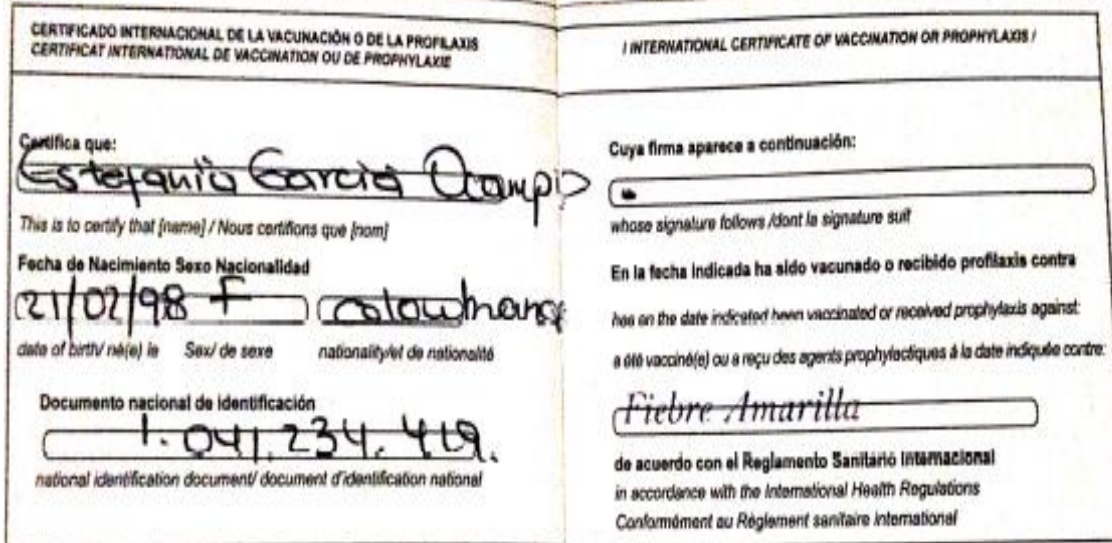 CERTIFICADO INTERNACIONAL DE LA VACUNACIÓN O DE LA PROFILAXIS
CERTIFICAT INTERNATIONAL DE VACCINATION OU DE PROPHYLAXIE
Certifica que:
Estefania Garcia Ocampo
This is to certify that [name] / Nous certifions que [nom]
Fecha de Nacimiento Sexo Nacionalidad
21/02/98 F colombiana
date of birth/ né(e) le Sex/ de sexe nationality/et de nationalité
Documento nacional de identificación
1.041.234.419.
national identification document/ document d'identification national
/ INTERNATIONAL CERTIFICATE OF VACCINATION OR PROPHYLAXIS /
Cuya firma aparece a continuación:
whose signature follows /dont la signature suit
En la fecha indicada ha sido vacunado o recibido profilaxis contra
has on the date indicated been vaccinated or received prophylaxis against:
a été vacciné(e) ou a reçu des agents prophylactiques à la date indiquée contre:
Fiebre Amarilla
de acuerdo con el Reglamento Sanitario Internacional
in accordance with the International Health Regulations
Conformément au Règlement sanitaire International